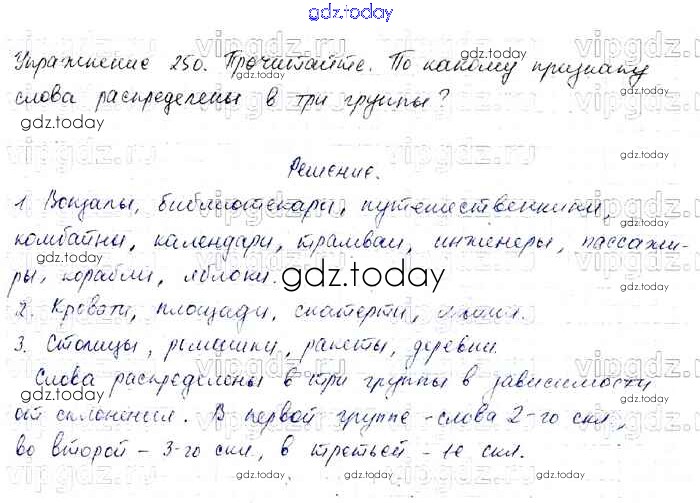 gdz.today
Упражнение 250. Прочитайте. По какому признаку
слова распределены в три группы?
gdz.today
gdz.today
gdz.today
Решение.
gdz.today
1. Вокзалы, библиотекари, путешественники,
комбайны, календари, трамваи, инженеры, пассажи-
ры, корабли, яблоки.
gdz.today
gdz.today
2. Кровати, площади, скатерти,
3. Столицы, ромашки, ракеты, деревни.
Слова распределены в три группы в зависимости
gdz.today
от склонения. В первой группе - слова 2-го скл.,
во второй - 3-го скл, в третьей - 1е скл.
gdz.today
gdz.today